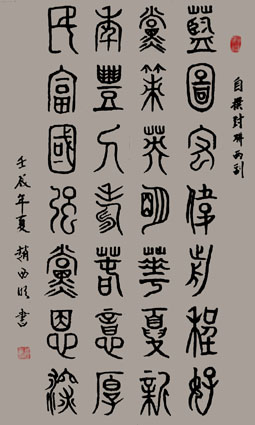 自撰对联两副
藍圖宏偉前程好
黨策英明華夏新
年豐人壽春意厚
民富國强黨恩深
壬辰年夏 趙西書